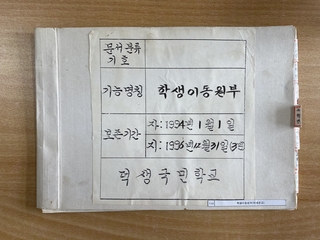 문서분류
기호
기능명칭 학생이동원부
보존기간 자: 1994년 1월 1일
지: 1996년 12월 31일 (3년)
덕생국민학교